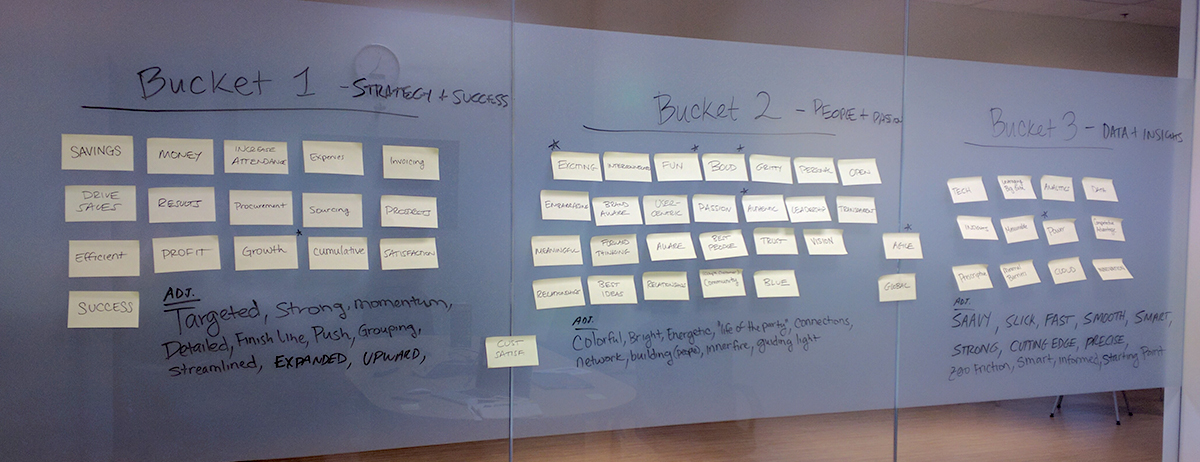 Bucket 1 - STRATEGY + SUCCESS
SAVINGS
MONEY
INCREASE ATTENDANCE
Expenses
Invoicing
DRIVE SALES
RESULTS
Procurement
Sourcing
PROSPECTS
Efficient
PROFIT
Growth
Cumulative
SATISFACTION
SUCCESS
ADJ.
Targeted, Strong, momentum,
Detailed, Finish Line, Push, Grouping,
Streamlined, EXPANDED, UPWARD,
CUST SATISF
Bucket 2 - PEOPLE + PASSION
EXCITING
FUN
BOLD
GRITTY
PERSONAL
OPEN
EMBARRASSING
BRAND AWARE
USER-CENTRIC
PASSION
AUTHENTIC
LEADERSHIP
TRANSPARENT
MEANINGFUL
FORWARD THINKING
AWARE
BEST PEOPLE
TRUST
VISION
RELATIONSHIPS
BEST IDEAS
RELATIONSHIPS
Community
BLUE
AGILE
GLOBAL
ADJ.
Colorful, Bright, Energetic, "life of the party", Connections,
network, building (people), inner fire, guiding light
Bucket 3 - DATA + INSIGHTS
TECH
Leveraging Big Data
ANALYTICS
DATA
Measurable
Power
Competitive Advantage
Prescriptive
Barriers
CLOUD
ADJ.
SAAVY, SLICK, FAST, SMOOTH, SMART,
STRONG, CUTTING EDGE, PRECISE,
Zero Friction, Smart, informed, Starting Point